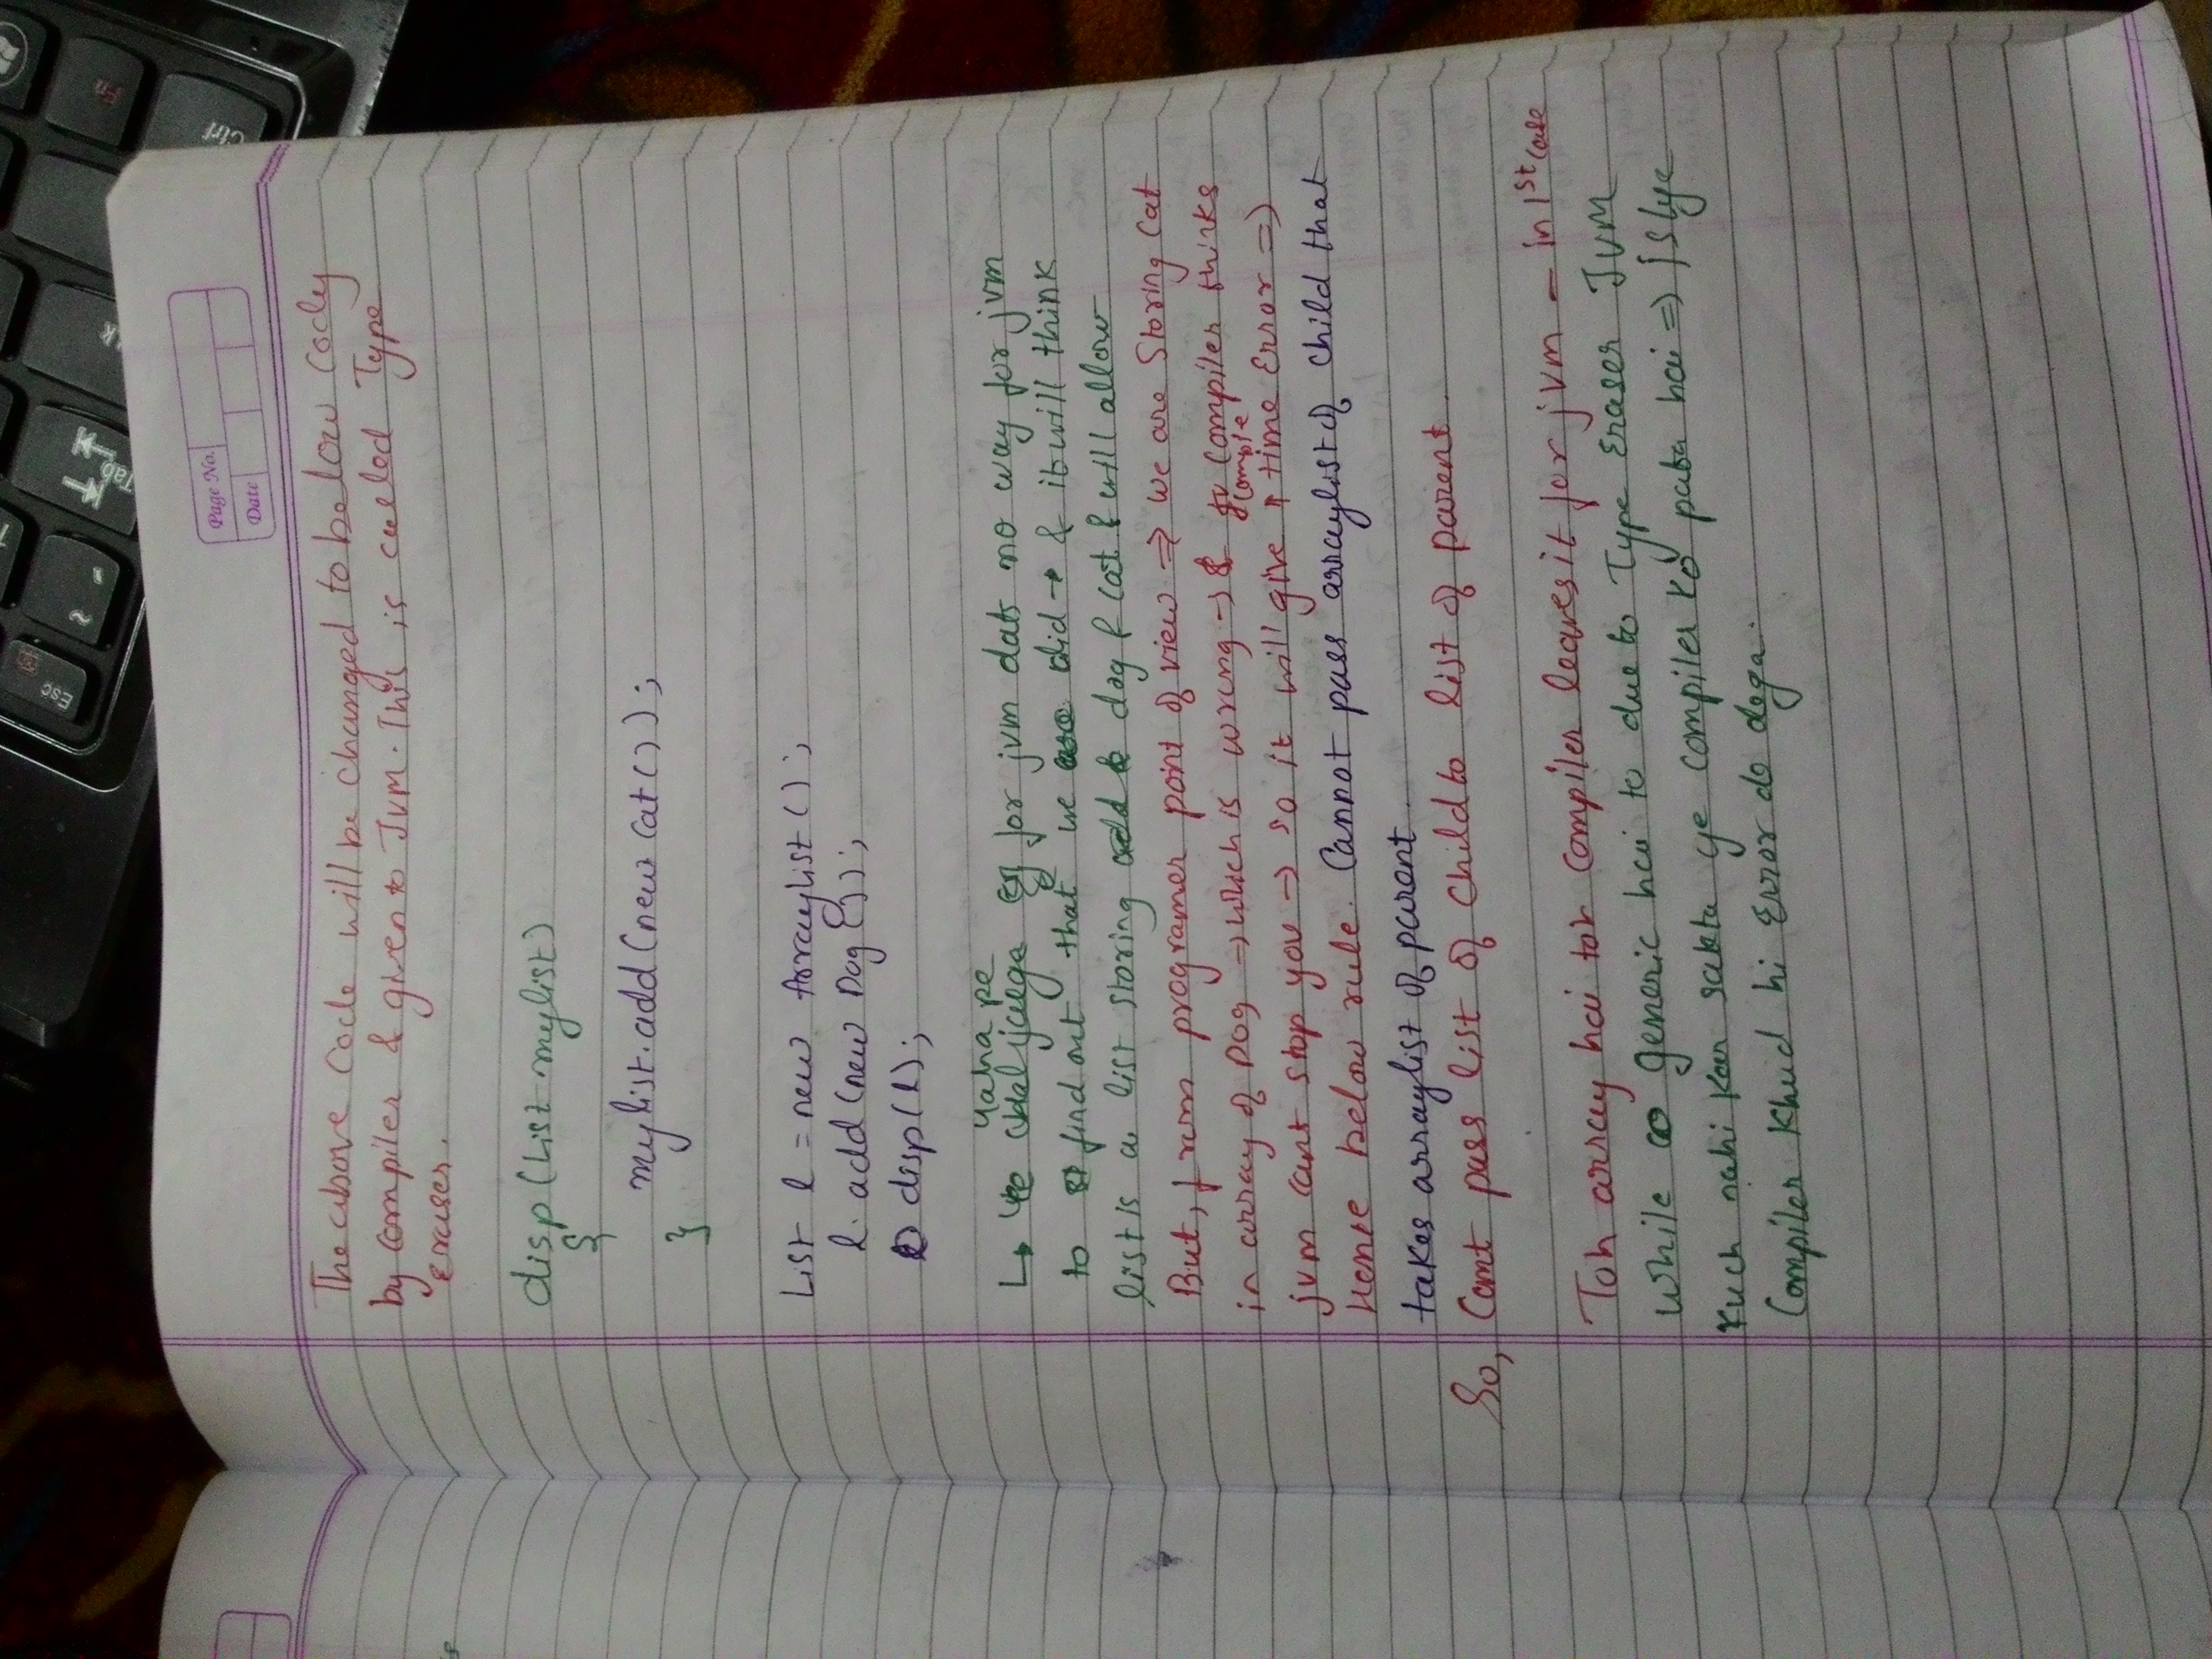 Esc
Tab
Fn
Ctrl
Page No.
Date
The above Code will be changed to below Cody
by compiler & given to JVM. This is called Type
eraser.
disp(List mylist)
{
mylist.add(new Cat());
}
List l = new Arraylist();
l.add(new Dog());
disp(l);
yaha pe
↳ chal jaega for jvm dats no way for jvm
to find out that we did → & it will think
list is a list storing dog & cat & will allow
But, from programer point of view ⇒ we are Storing Cat
in array of Dog → which is wrong → & compiler thinks
compile
jvm cant stop you → so it will give ↑ time Error ⇒
Hense below rule. Cannot pass arraylist of child that
takes arraylist of parent.
So, Cant pass list of child to list of parent.
Toh array hai toh compiler leaves it for jvm - in 1st case
while generic hai to due to Type Eraser JVM
kuch nahi kar sakta ye compiler ko pata hai ⇒ islye
Compiler khud hi Error de dega.